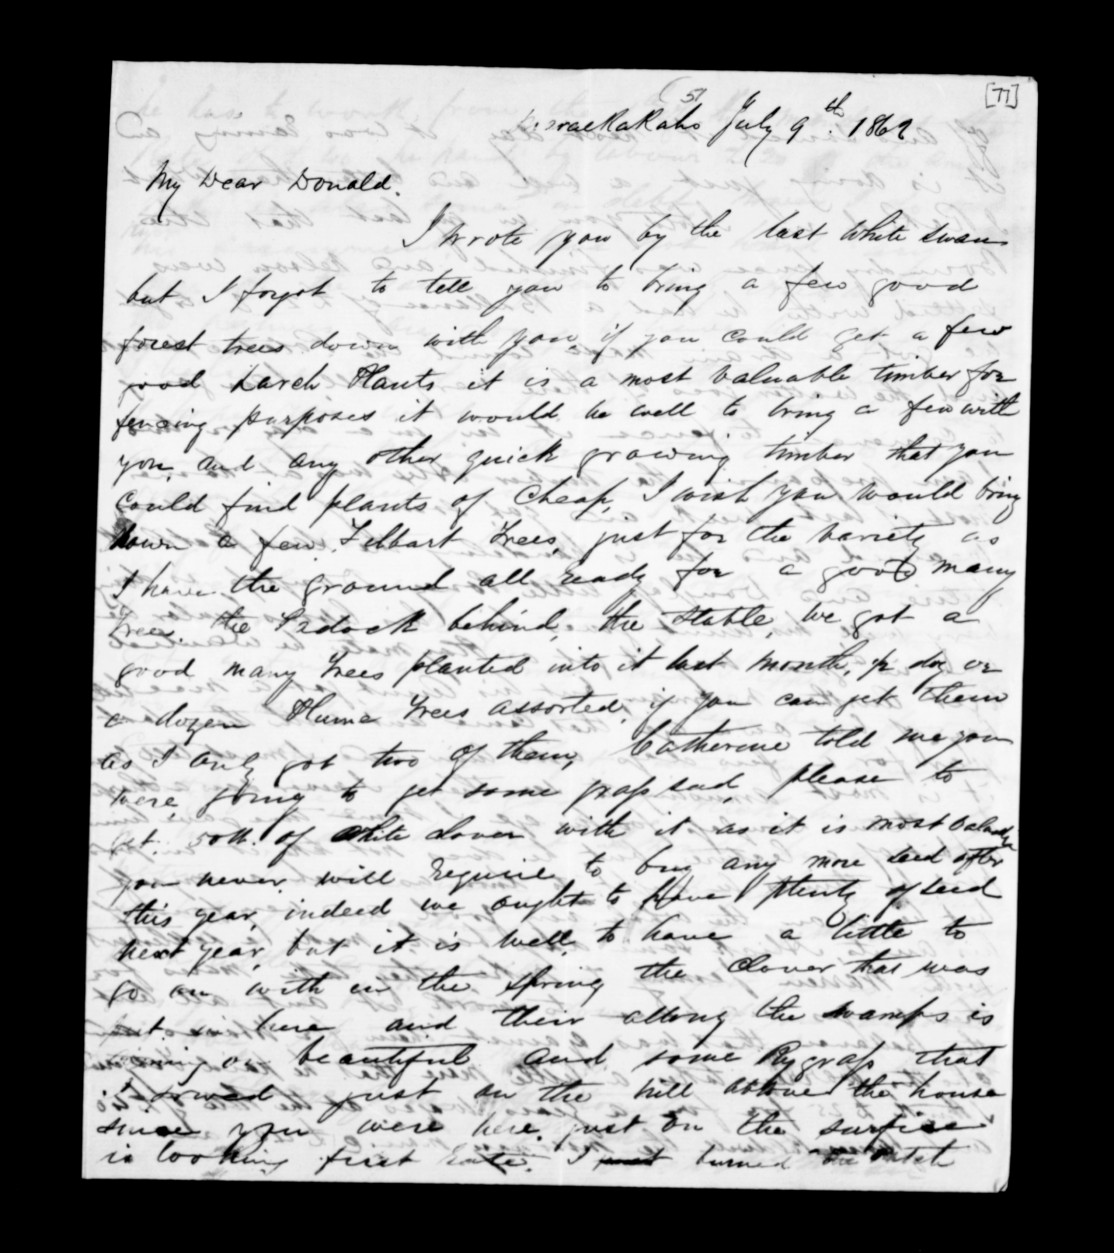 [77]
(51
July 9th. 1862
My Dear Donald.
I wrote you by the last White Swan
but I forgot to tell you to bring a few good
forest trees down with you, if you could get a few
good Larch Plants it is a most valuable timber for
fencing purposes it would be well to bring a few with
you, and any other quick growing timber that you
could find plants of cheap, I wish you would bring
down a few Filbart Trees, just for the variety as
I have the ground all ready for a good many
trees. the Padock behind, the stable, we got a
good many Trees planted into it last month, ½ doz or
a dozen Plume Trees assorted, if you can get them
as I only got two of them, Catherine told me you
were, going to get some grass seed, please to
get. 50lb. of White clover with it as it is most valuable
you never will require to buy any more seed after
this year, indeed we ought to have plenty of seed
next year, but it is well, to have a little to
go on with in the spring the clover that was
put in here and their along the swamps is
coming on beautifull and some Rygrass that
I sowed just on the hill above the house
since you were here just on the surfise
is looking first rate. I burned the patch